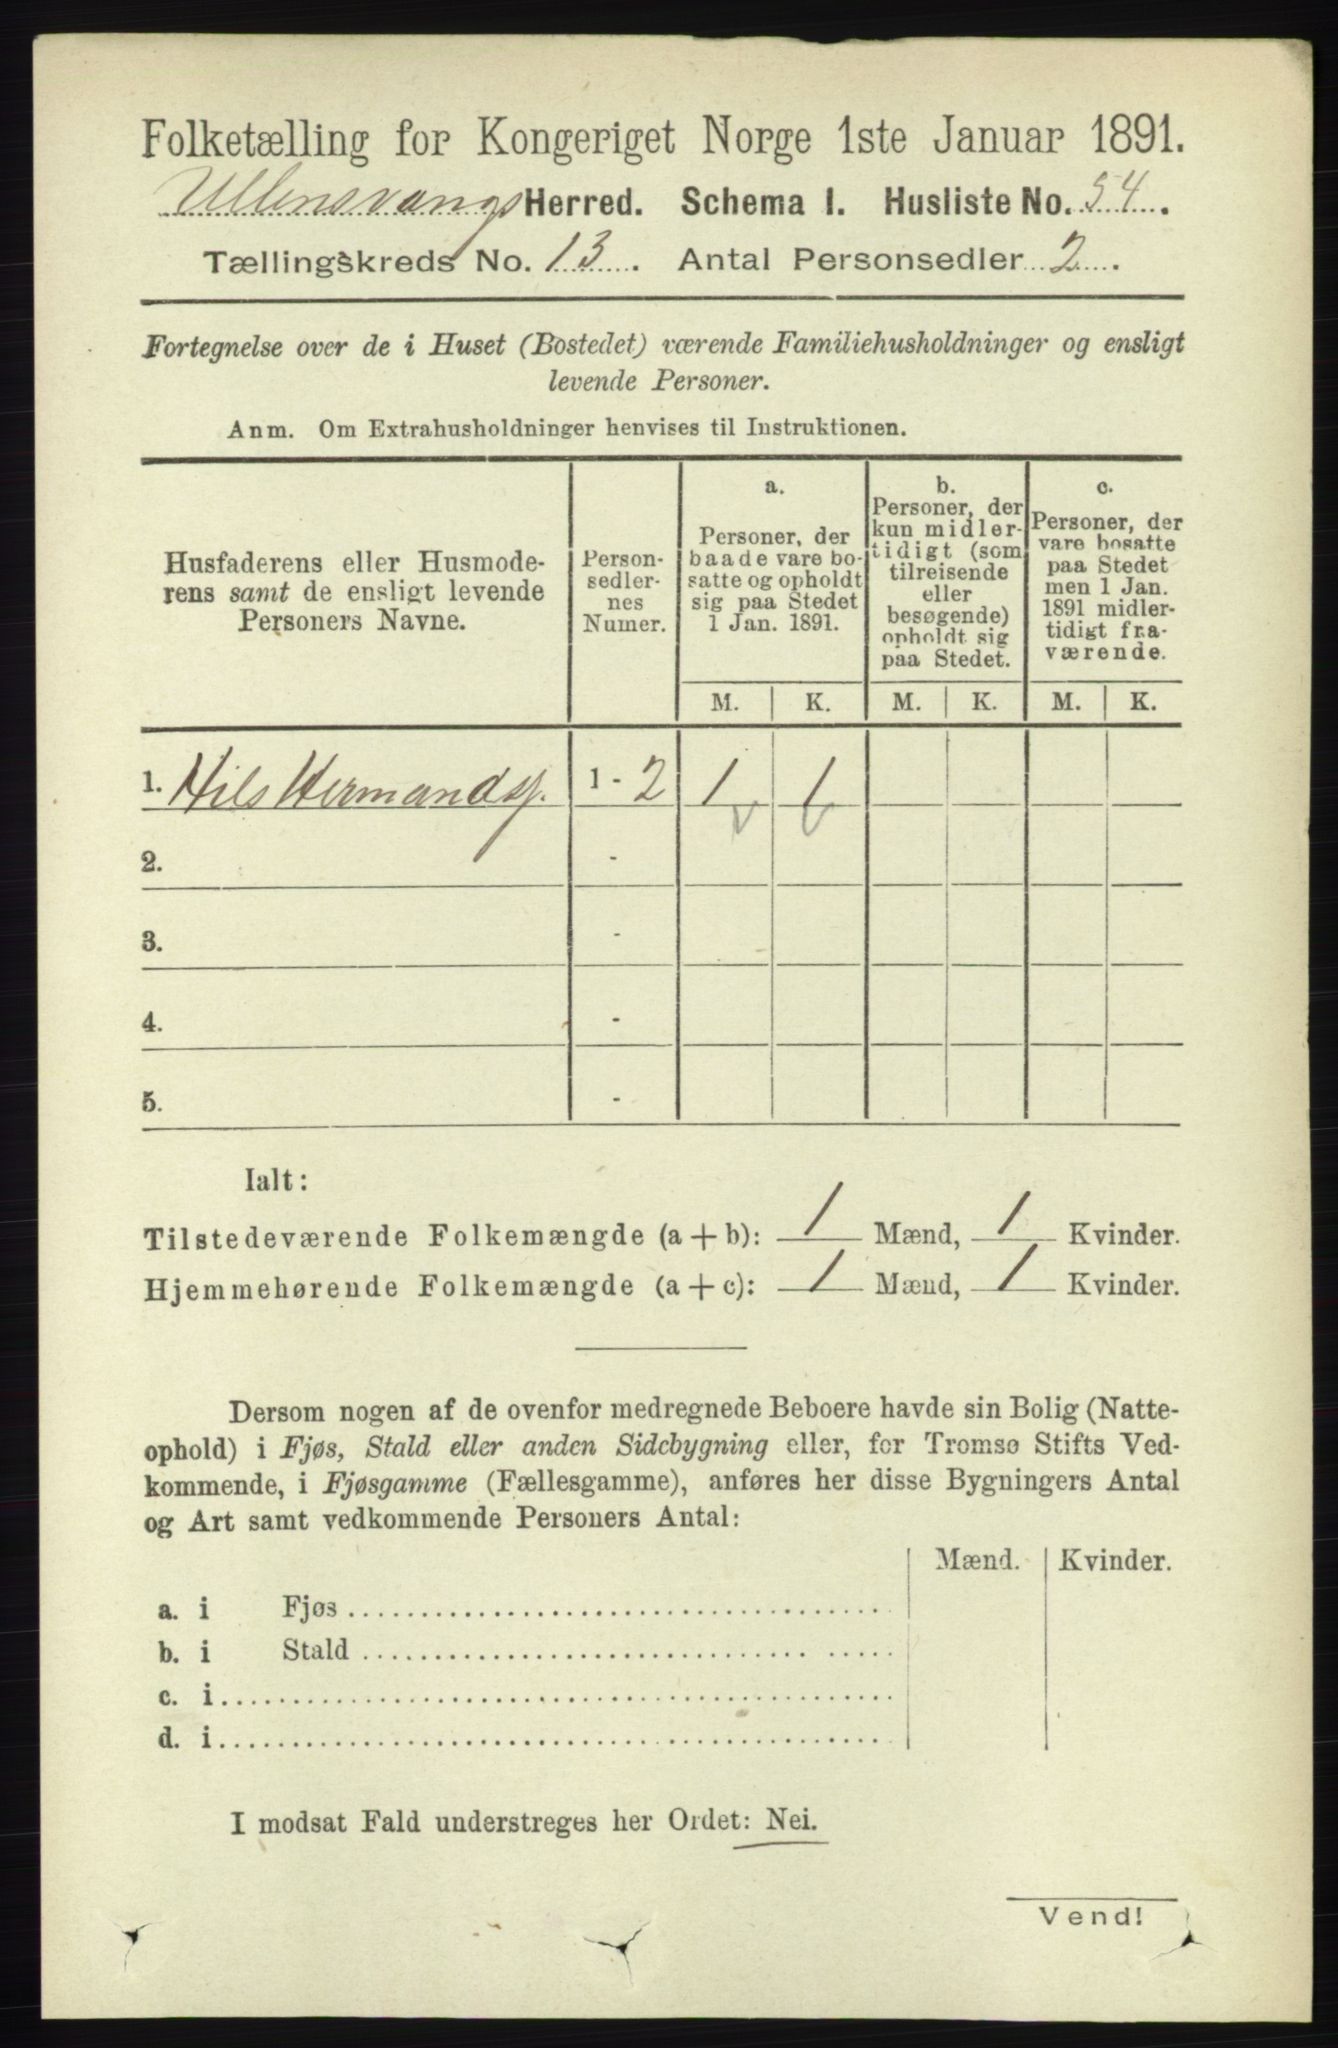 Folketælling for Kongeriget Norge 1ste Januar 1891.
Ullensvangs Herred. Schema I. Husliste No. 54.
Tællingskreds No. 13. Antal Personsedler 2.
Fortegnelse over de i Huset (Bostedet) værende Familiehusholdninger og ensligt
levende Personer.
Anm. Om Extrahusholdninger henvises til Instruktionen.
Husfaderens eller Husmode-
rens samt de ensligt levende
Personers Navne.
Person-
sedler-
nes
Numer.
a.
Personer, der
baade vare bo-
satte og opholdt
sig paa Stedet
1 Jan. 1891.
b.
Personer, der
kun midler-
tidigt (som
tilreisende
eller
besøgende)
opholdt sig
paa Stedet.
c.
Personer, der
vare bosatte
paa Stedet
men 1 Jan.
1891 midler-
tidigt fra-
værende.
M. K. M. K. M. K.
1. Nils Hermands. 1 - 2 1 1
2. -
3. -
4. -
5. -
Ialt:
Tilstedeværende Folkemængde (a + b): 1 Mænd, 1 Kvinder.
Hjemmehørende Folkemængde (a + c): 1 Mænd, 1 Kvinder.
Dersom nogen af de ovenfor medregnede Beboere havde sin Bolig (Natte-
ophold) i Fjøs, Stald eller anden Sidebygning eller, for Tromsø Stifts Ved-
kommende, i Fjøsgamme (Fællesgamme), anføres her disse Bygningers Antal
og Art samt vedkommende Personers Antal:
Mænd. Kvinder.
a. i Fjøs
b. i Stald
c. i
d. i
I modsat Fald understreges her Ordet: Nei.
Vend!